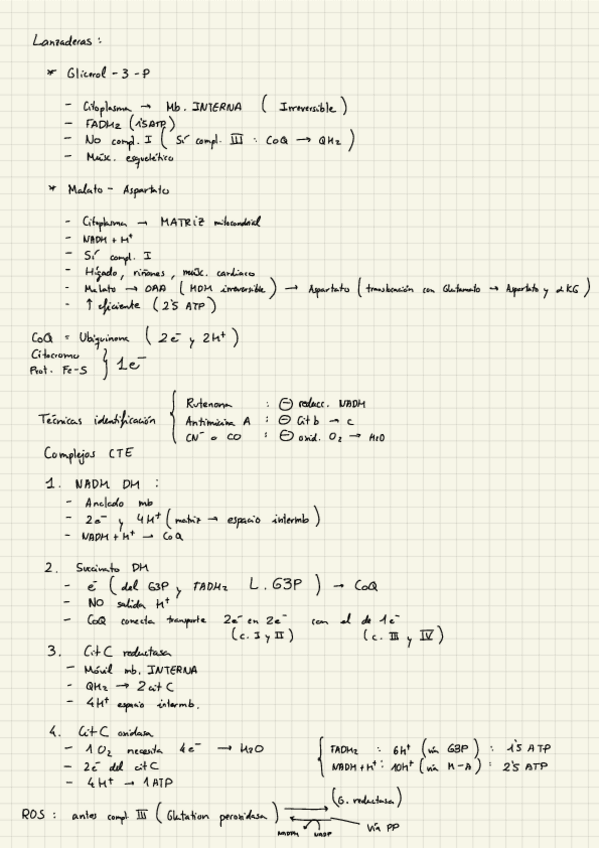 Lanzaderas :
* Glicerol - 3 - P
- Citoplasma → Mb. INTERNA ( Irreversible )
- FADH2 (1'5 ATP)
- No compl. I ( Sí compl. III : CoQ → QH2 )
- Músc. esquelético
* Malato - Aspartato
- Citoplasma → MATRIZ mitocondrial
- NADH + H+
- Sí compl. I
- Hígado, riñones, músc. cardiaco
- Malato → OAA ( MDH irreversible ) → Aspartato ( transaminación con Glutamato → Aspartato y αKG )
- ↑ eficiente ( 2'5 ATP )
CoQ = Ubiquinona ( 2e- y 2H+ )
Citocromo
Prot. Fe-S } 1e-
Técnicas identificación {
Rotenona : ⊖ reducc. NADH
Antimicina A : ⊖ Cit b → c
CN- o CO : ⊖ oxid. O2 → H2O
Complejos CTE
1. NADH DH :
- Anclado mb
- 2e- y 4H+ ( matriz → espacio intermb )
- NADH + H+ → CoQ
2. Succinato DH
- e- ( del G3P y FADH2 L. G3P ) → CoQ
- NO salida H+
- CoQ conecta transporte 2e- en 2e- con el de 1e-
(c. I y II) (c. III y IV)
3. Cit C reductasa
- Móvil mb. INTERNA
- QH2 → 2 cit C
- 4H+ espacio intermb.
4. Cit C oxidasa
- 1 O2 necesita 4e- → H2O
- 2e- del cit C
- 4H+ → 1 ATP
{ FADH2 : 6H+ (vía G3P) : 1'5 ATP
NADH + H+ : 10H+ (vía M-A) : 2'5 ATP
ROS : antes compl. III ( Glutation peroxidasa ) → (G. reductasa)
NADPH NADP Vía PP